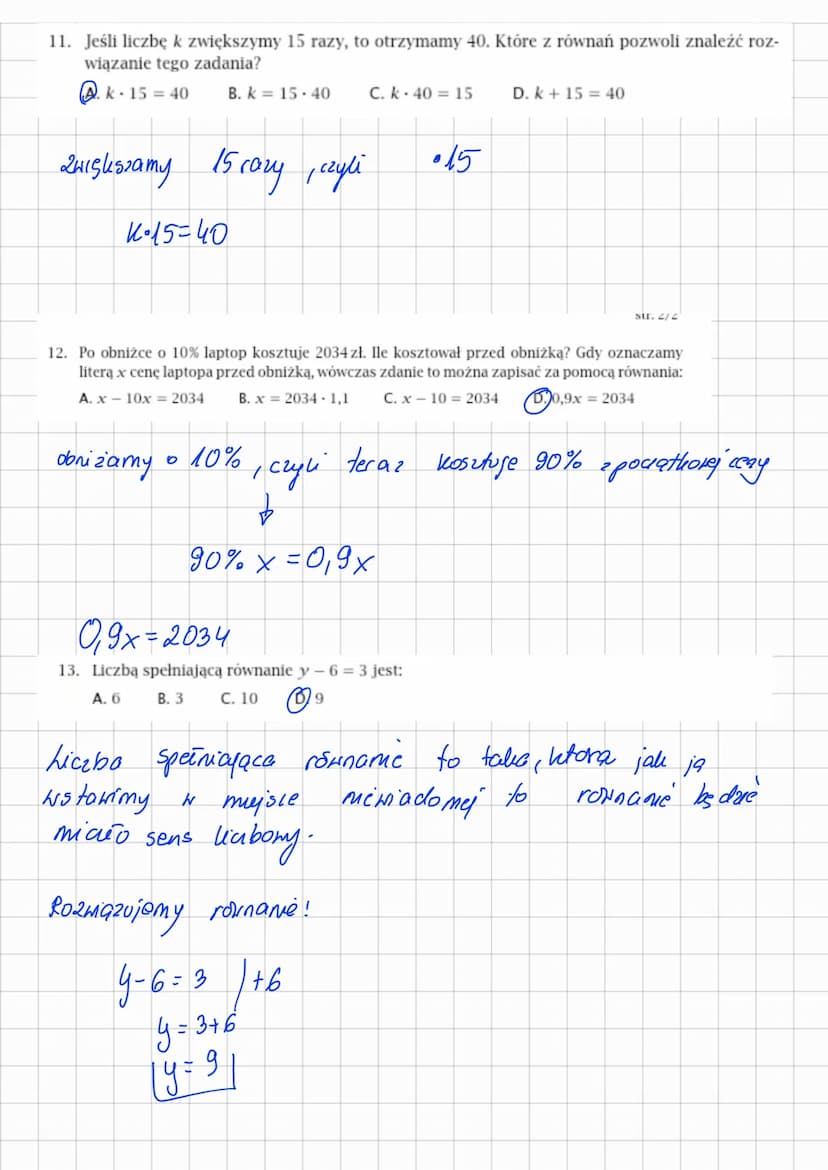 11. Jeśli liczbę k zwiększymy 15 razy, to otrzymamy 40. Które z równań pozwoli znaleźć roz-
wiązanie tego zadania?
A. k · 15 = 40 B. k = 15 · 40 C. k · 40 = 15 D. k + 15 = 40
zwiększamy 15 razy, czyli ·15
k·15=40
str. 2/2
12. Po obniżce o 10% laptop kosztuje 2034 zł. Ile kosztował przed obniżką? Gdy oznaczamy
literą x cenę laptopa przed obniżką, wówczas zdanie to można zapisać za pomocą równania:
A. x − 10x = 2034 B. x = 2034 · 1,1 C. x − 10 = 2034 D. 0,9x = 2034
obniżamy o 10%, czyli teraz kosztuje 90% z początkowej ceny
↓
90% x = 0,9x
0,9x = 2034
13. Liczbą spełniającą równanie y − 6 = 3 jest:
A. 6 B. 3 C. 10 D. 9
Liczba spełniająca równanie to taka, która jak ją
wstawimy w miejsce niewiadomej to równanie będzie
miało sens liczbowy.
Rozwiązujemy równanie!
y-6=3 /+6
y=3+6
y=9